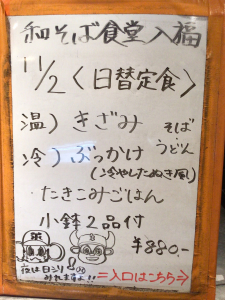 和そば食堂入福
11/2〈日替定食〉
温）きざみ そば
冷）ぶっかけ うどん
（冷やしたぬき風）
たきこみごはん
小鉢2品付
¥880.-
夜は日シリ
みれますよ!!
⇒入口はこちら⇒